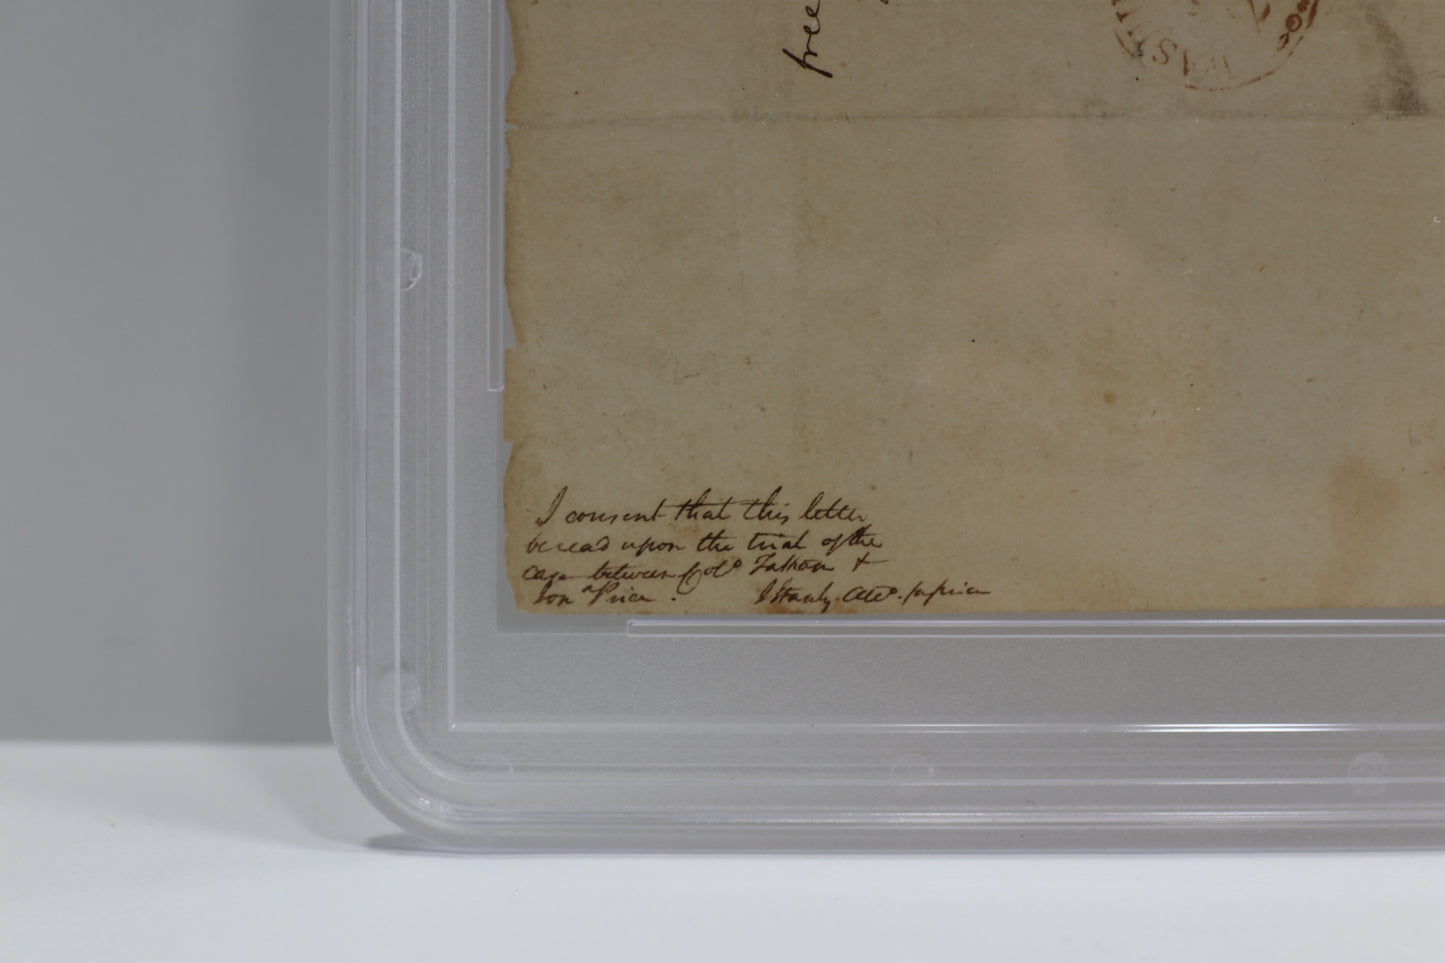 free
WASH
I consent that this letter
be read upon the trial of the
case between Colo &
Jona Price.
J Stanly. Atto.